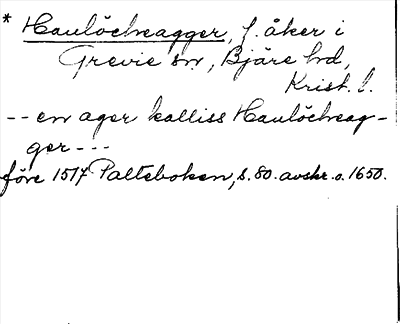 * Haulöcheagger, f. åker i
Grevie sn, Bjäre hd,
Krist. l.
-- en ager kalliss Haulöcheag-
ger ---
före 1517 Palteboken, s. 80. avskr. o. 1650.